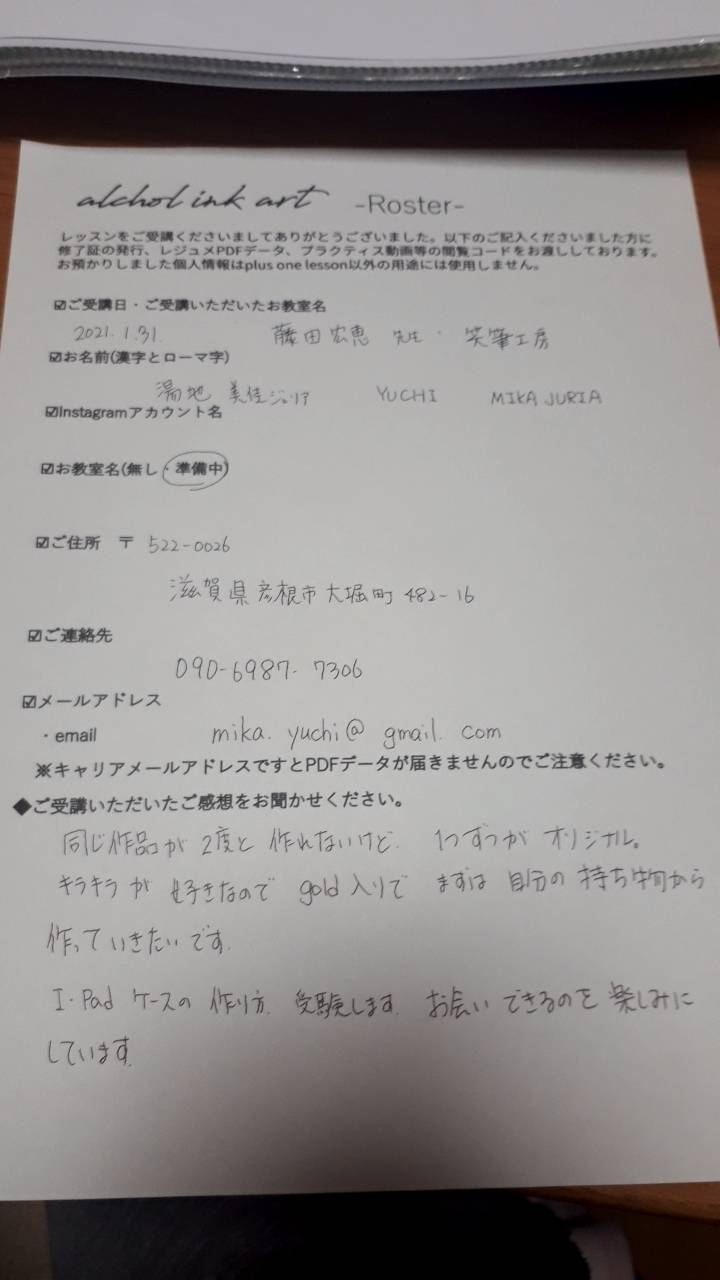 alchol ink art -Roster-
レッスンをご受講くださいましてありがとうございました。以下のご記入くださいました方に
修了証の発行、レジュメPDFデータ、プラクティス動画等の閲覧コードをお渡ししております。
お預かりしました個人情報はplus one lesson以外の用途には使用しません。
☑ご受講日・ご受講いただいたお教室名
2021.1.31. 藤田宏恵 先生・ 笑筆工房
☑お名前(漢字とローマ字)
湯地 美佳ジュリア YUCHI MIKA JURIA
☑Instagramアカウント名
☑お教室名(無し・準備中)
☑ご住所 〒 522-0026
滋賀県彦根市大堀町482-16
☑ご連絡先
090-6987-7306
☑メールアドレス
・email mika.yuchi@gmail.com
※キャリアメールアドレスですとPDFデータが届きませんのでご注意ください。
◆ご受講いただいたご感想をお聞かせください。
同じ作品が2度と作れないけど、1つずつがオリジナル。
キラキラが好きなので gold入りで まずは自分の持ち物から
作っていきたいです。
I・Padケースの作り方、受験します。お会いできるのを楽しみに
しています。